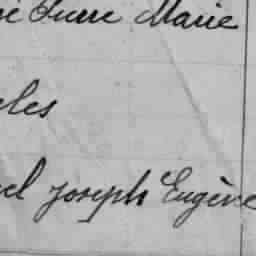 Pierre Marie
les
el Joseph Eugène